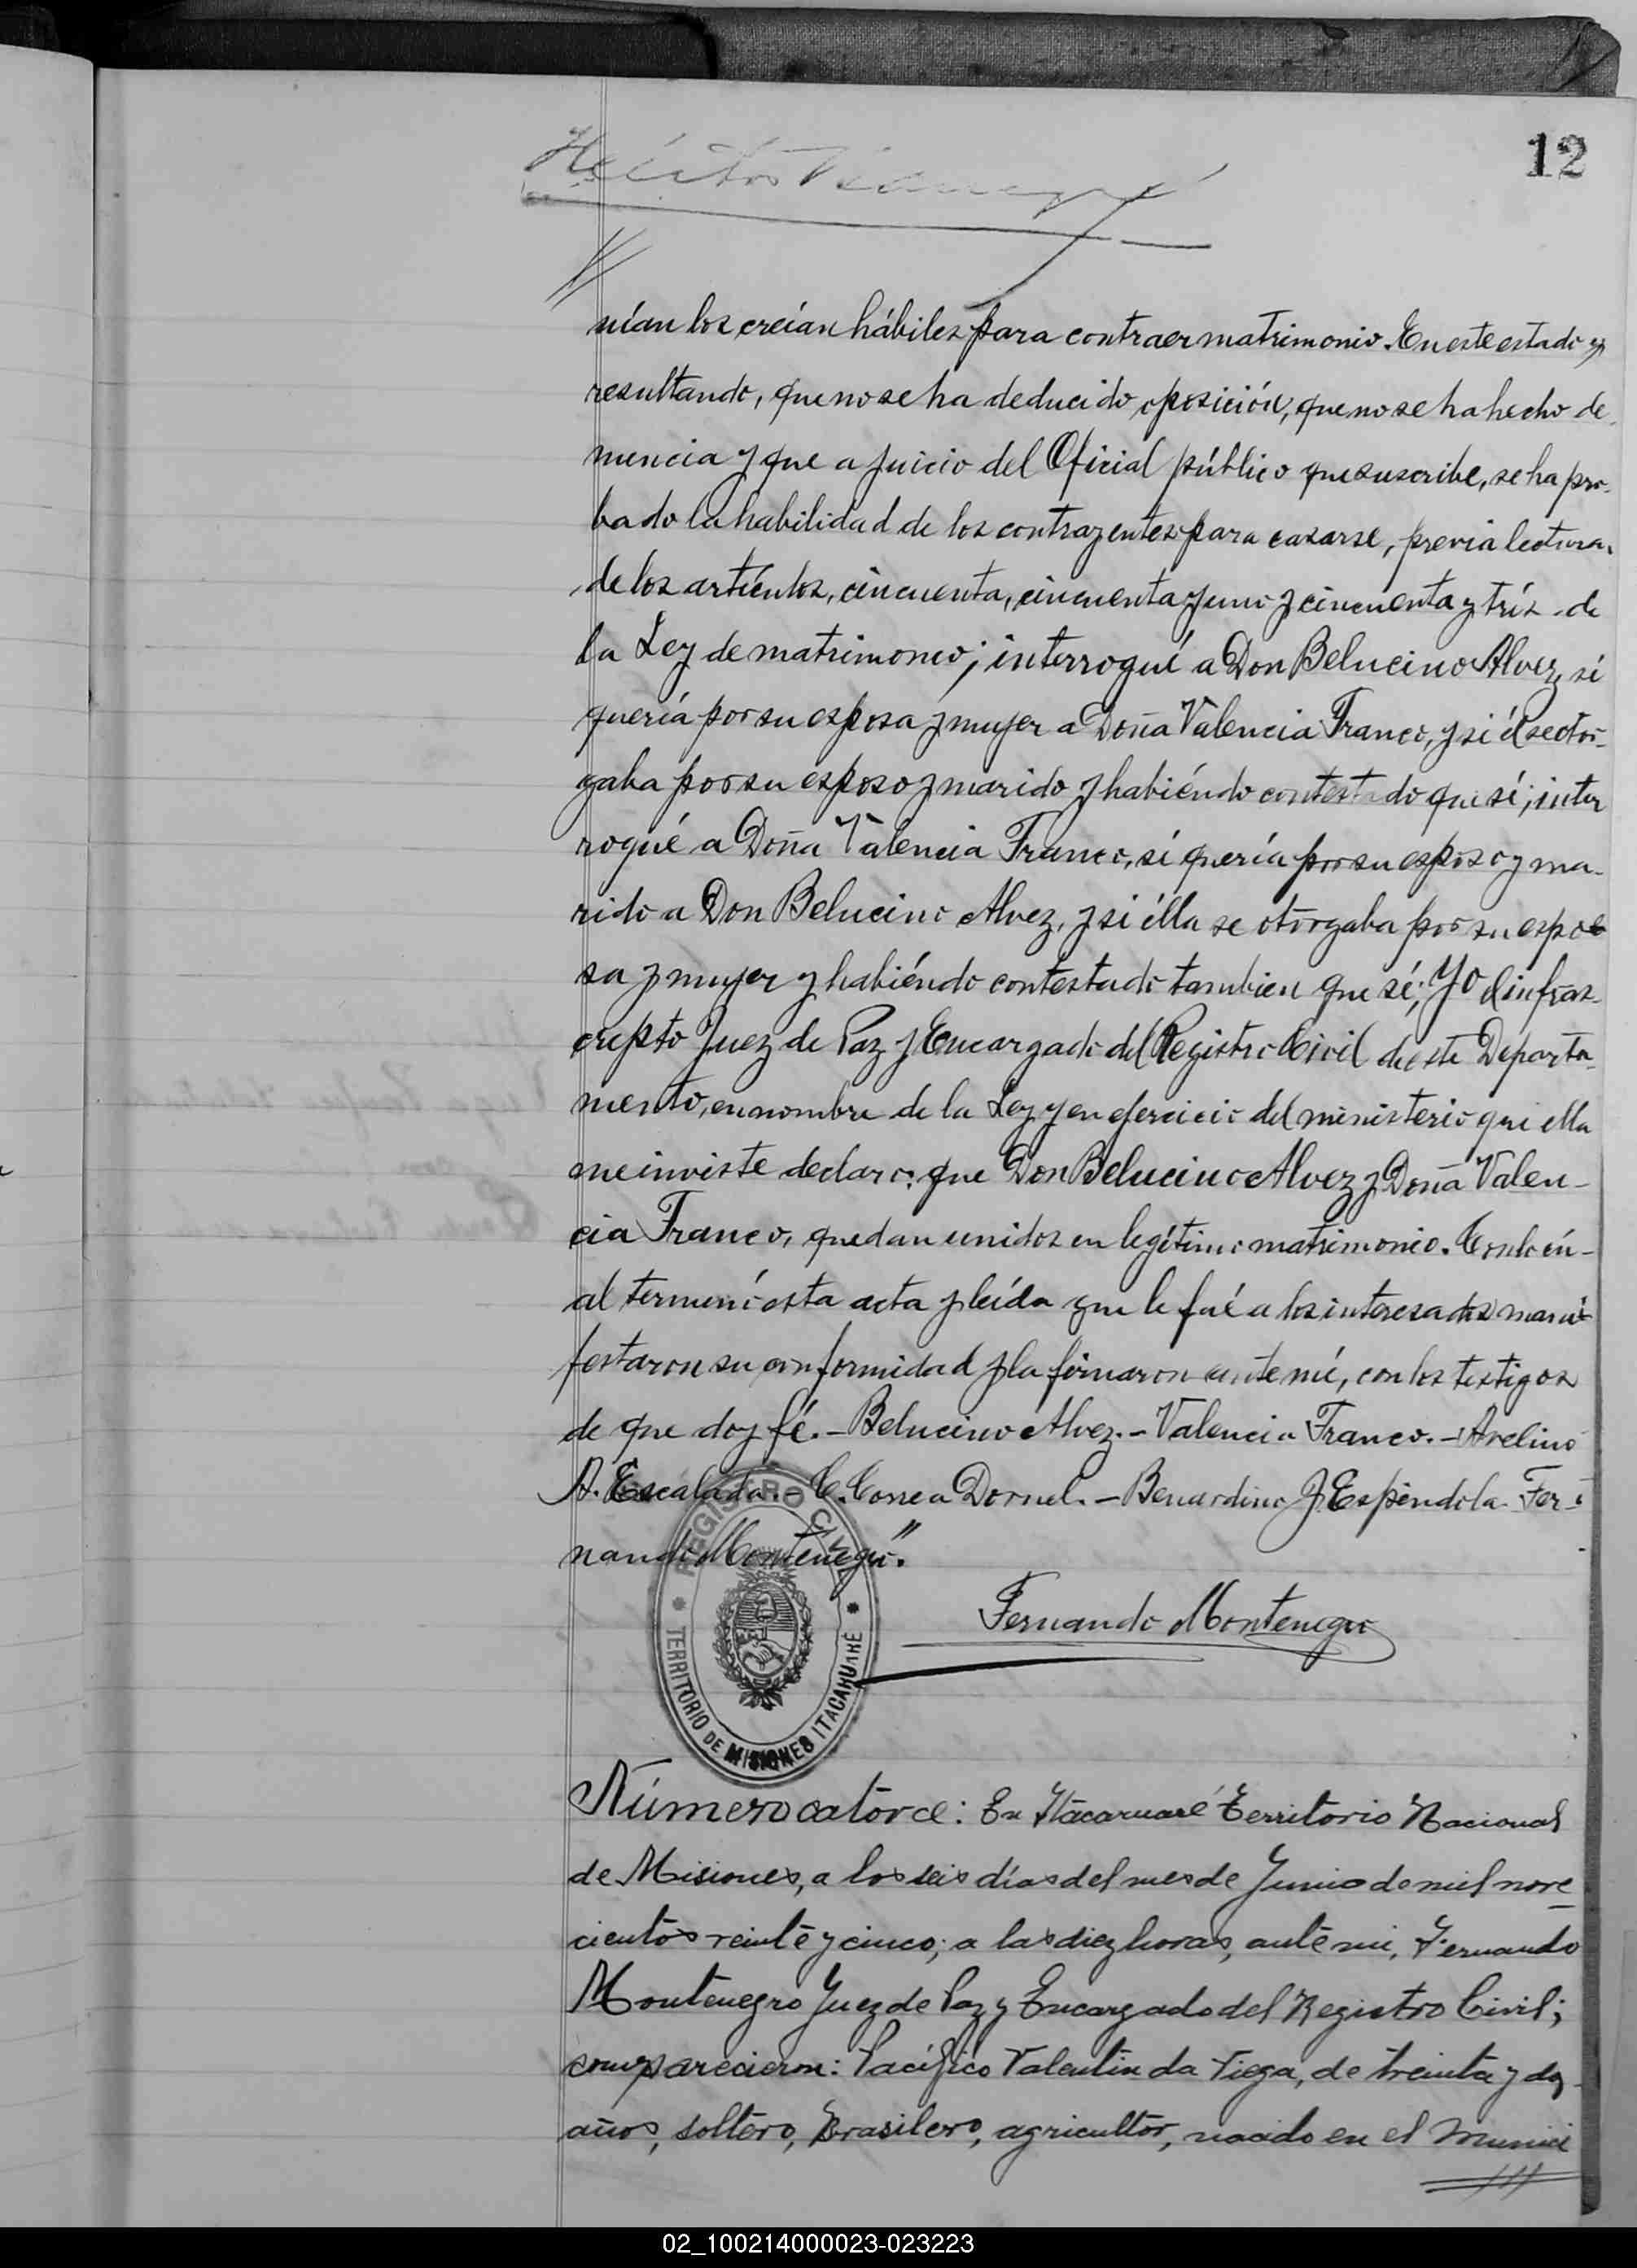 12
nían los creían hábiles para contraer matrimonio. En este estado y
resultando, que no se ha deducido oposición, que no se ha hecho de-
nuncia y que a juicio del Oficial público que suscribe, se ha pro-
bado la habilidad de los contrayentes para casarse, previa lectura,
de los artículos, cincuenta, cincuenta y uno y cincuenta y trés de
la Ley de matrimonio; interrogué a Don Belucino Alvez, si
quería por su esposa y mujer a Doña Valencia Franco, y si él se otor-
gaba por su esposo y marido y habiéndo contestado que sí; inter
rogué a Doña Valencia Franco, si quería por su esposo y ma-
rido a Don Belucino Alvez, y si élla se otorgaba por su espo
sa y mujer y habiéndo contestado tambien que sí; Yo el infras-
cripto Juez de Paz y Encargado del Registro Civil de este Departa-
mento, en nombre de la Ley y en ejercicio del ministerio que ella
me inviste declaro: que Don Belucino Alvez y Doña Valen-
cia Franco, quedan unidos en legítimo matrimonio. Con lo cu-
al terminó esta acta y leída que le fué a los interesados mani-
festaron su conformidad y la firmaron ante mí, con los testigos
de que doy fé. - Belucino Alvez. - Valencia Franco. - Avelino
A. Escalada. - C. Correa Dornel. - Benardino J. Espindola. Fer-
nando Montenegro."
REGISTRO CIVIL
TERRITORIO DE MISIONES ITACARUARÉ
Fernando Montenegro
Número catorce: En Itacaruaré Territorio Nacional
de Misiones, a los seis días del mes de Junio de mil nove
cientos veinte y cinco; a las diez horas, ante mi, Fernando
Montenegro Juez de Paz y Encargado del Registro Civil;
comparecieron: Pacífico Valentin da Veiga, de treinta y dos
años, soltero, Brasilero, agricultor, nacido en el Munici
02_100214000023-023223